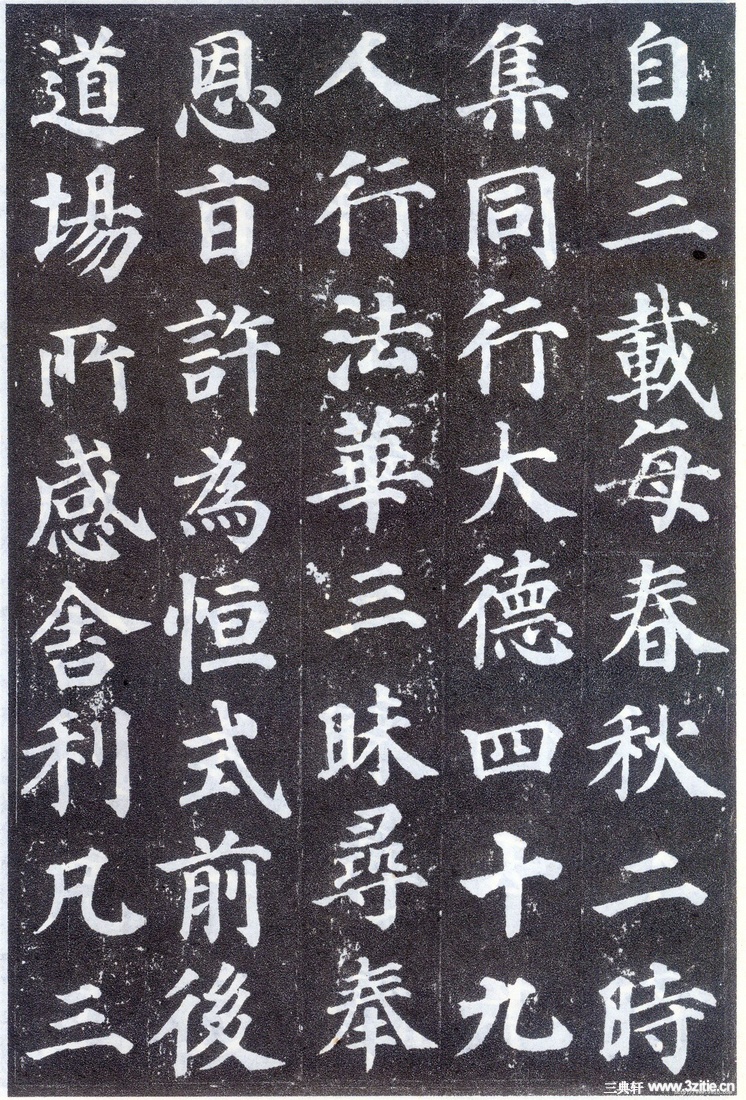 自三載每春秋二時
集同行大德四十九
人行法華三昧尋奉
恩旨許為恒式前後
道場所感舍利凡三
三典轩 www.3zitie.cn